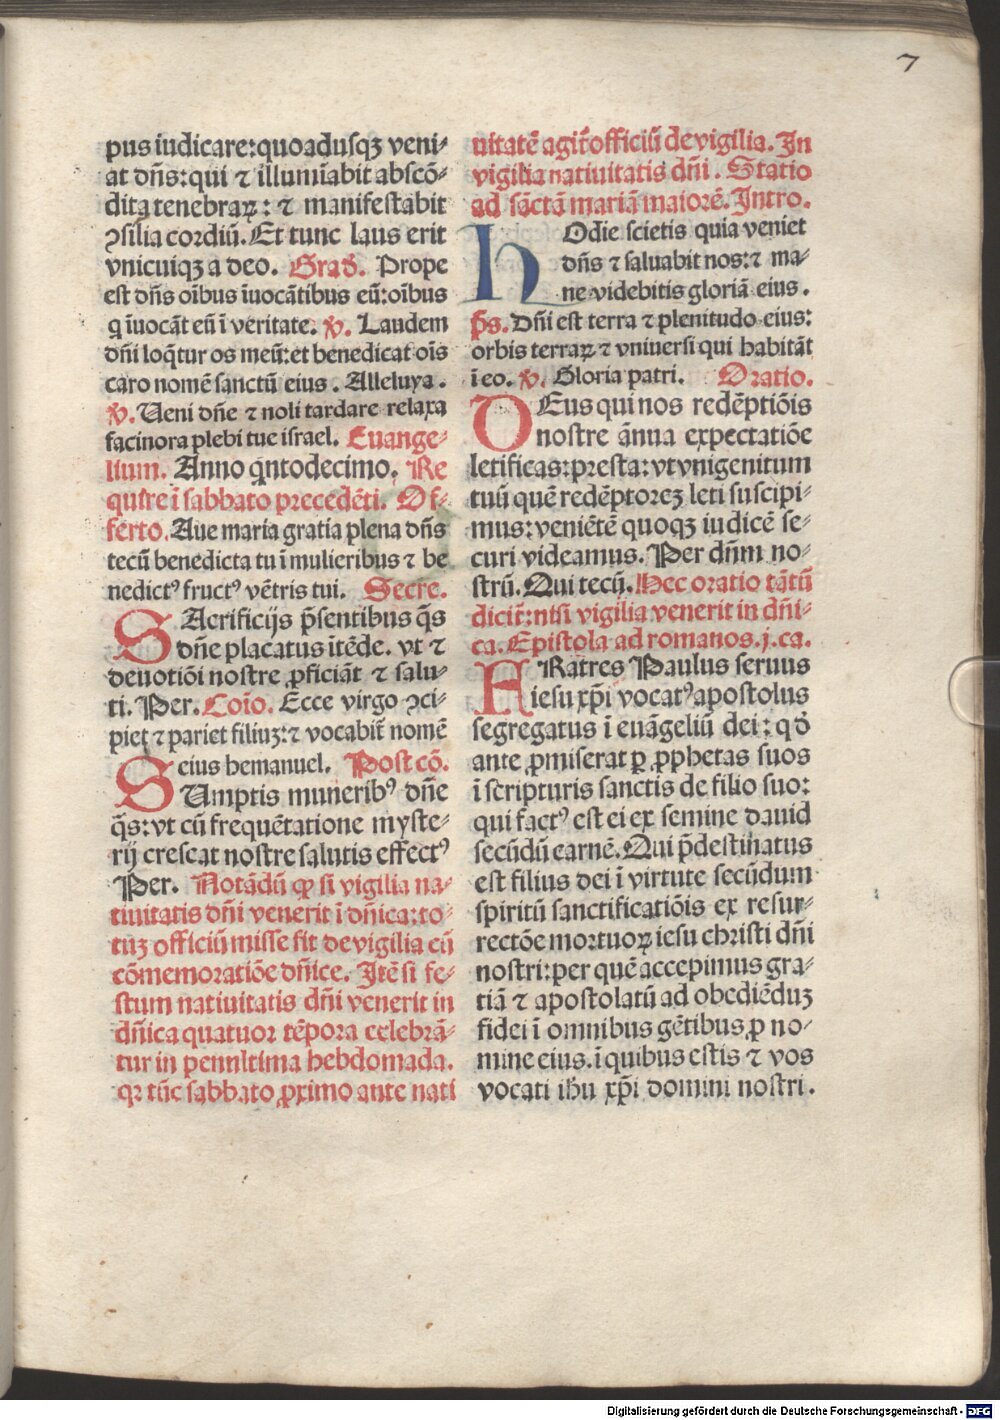 7
pus iudicare: quoadusqꝫ veni⸗
at dn̄s: qui ⁊ illumīabit abscō⸗
dita tenebraꝝ: ⁊ manifestabit
ꝯsilia cordiū. Et tunc laus erit
vnicuiqꝫ a deo. Grad̄. Prope
est dn̄s oībus īuocātibus eū: oībus
q īuocāt eū ī veritate. ꝟ. Laudem
dn̄i loq̄tur os meū: et benedicat oīs
caro nomē sanctū eius. Alleluya.
ꝟ. Ueni dn̄e ⁊ noli tardare relaxa
facinora plebi tue israel. Euange⸗
lium. Anno q̄ntodecimo. Re
quire ī sabbato precedēti. Of⸗
ferto. Aue maria gratia plena dn̄s
tecū benedicta tu ī mulieribus ⁊ be
nedictꝰ fructꝰ vētris tui. Secre.
SAcrificijs p̄sentibus q̄s
dn̄e placatus ītēde. vt ⁊
deuotiōi nostre ꝓficiāt ⁊ salu⸗
ti. Per. Coīo. Ecce virgo ꝯci⸗
piet ⁊ pariet filiuꝫ: ⁊ vocabit̄ nomē
eius hemanuel. Post cō.
SUmptis muneribꝰ dn̄e
q̄s: vt cū frequētatione myste⸗
rij crescat nostre salutis effectꝰ
Per. Notādū ꝙ si vigilia na⸗
tiuitatis dn̄i venerit ī dn̄ica: to⸗
tuꝫ officiū misse fit de vigilia cū
cōmemoratiōe dn̄ice. Itē si fe⸗
stum natiuitatis dn̄i venerit in
dn̄ica quatuor tēpora celebrā⸗
tur in penultima hebdomada.
qꝛ tūc sabbato ꝓximo ante nati
uitatē agit̄ officiū de vigilia. In
vigilia natiuitatis dn̄i. Statio
ad sāctā mariā maiorē. Intro.
hOdie scietis quia veniet
dn̄s ⁊ saluabit nos: ⁊ ma⸗
ne videbitis gloriā eius.
p̄s. Dn̄i est terra ⁊ plenitudo eius:
orbis terraꝝ ⁊ vniuersi qui habitāt
ī eo. ꝟ. Gloria patri. Oratio.
DEus qui nos redēptiōis
nostre ānua expectatiōe
letificas: presta: vt vnigenitum
tuū quē redēptoreꝫ leti suscipi⸗
mus: veniētē quoqꝫ iudicē se⸗
curi videamus. Per dn̄m no⸗
strū. Qui tecū. Hec oratio tātū
dicit̄: nisi vigilia venerit in dn̄i⸗
ca. Epistola ad romanos. j. ca.
FRatres Paulus seruus
iesu xp̄i vocatꝰ apostolus
segregatus ī euāgeliū dei: qd̄
ante ꝓmiserat ꝑ ꝓphetas suos
ī scripturis sanctis de filio suo:
qui factꝰ est ei ex semine dauid
secūdū carnē. Qui p̄destinatus
est filius dei ī virtute secūdum
spiritū sanctificatiōis ex resur⸗
rectōe mortuoꝝ iesu christi dn̄i
nostri: per quē accepimus gra⸗
tiā ⁊ apostolatū ad obediēduꝫ
fidei ī omnibus gētibus ꝓ no⸗
mine eius. ī quibus estis ⁊ vos
vocati ihu xp̄i domini nostri.
Digitalisierung gefördert durch die Deutsche Forschungsgemeinschaft - DFG